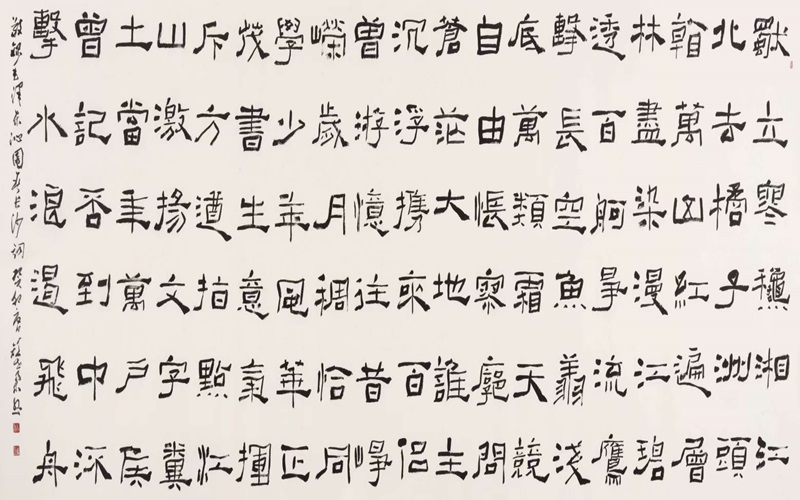 獨立寒穐湘江
北去橘子洲頭
看萬山紅遍層
林盡染漫江碧
透百舸爭流鷹
擊長空魚翔淺
底萬類霜天競
自由悵寥廓問
蒼茫大地誰主
沉浮携來百侶
曾游憶往昔崢
嶸歲月稠恰同
學少年風華正
茂書生意氣揮
斥方遒指點江
山激揚文字糞
土當年萬戶侯
曾記否到中流
擊水浪遏飛舟
敬録毛澤東沁園春長沙詞癸卯夏